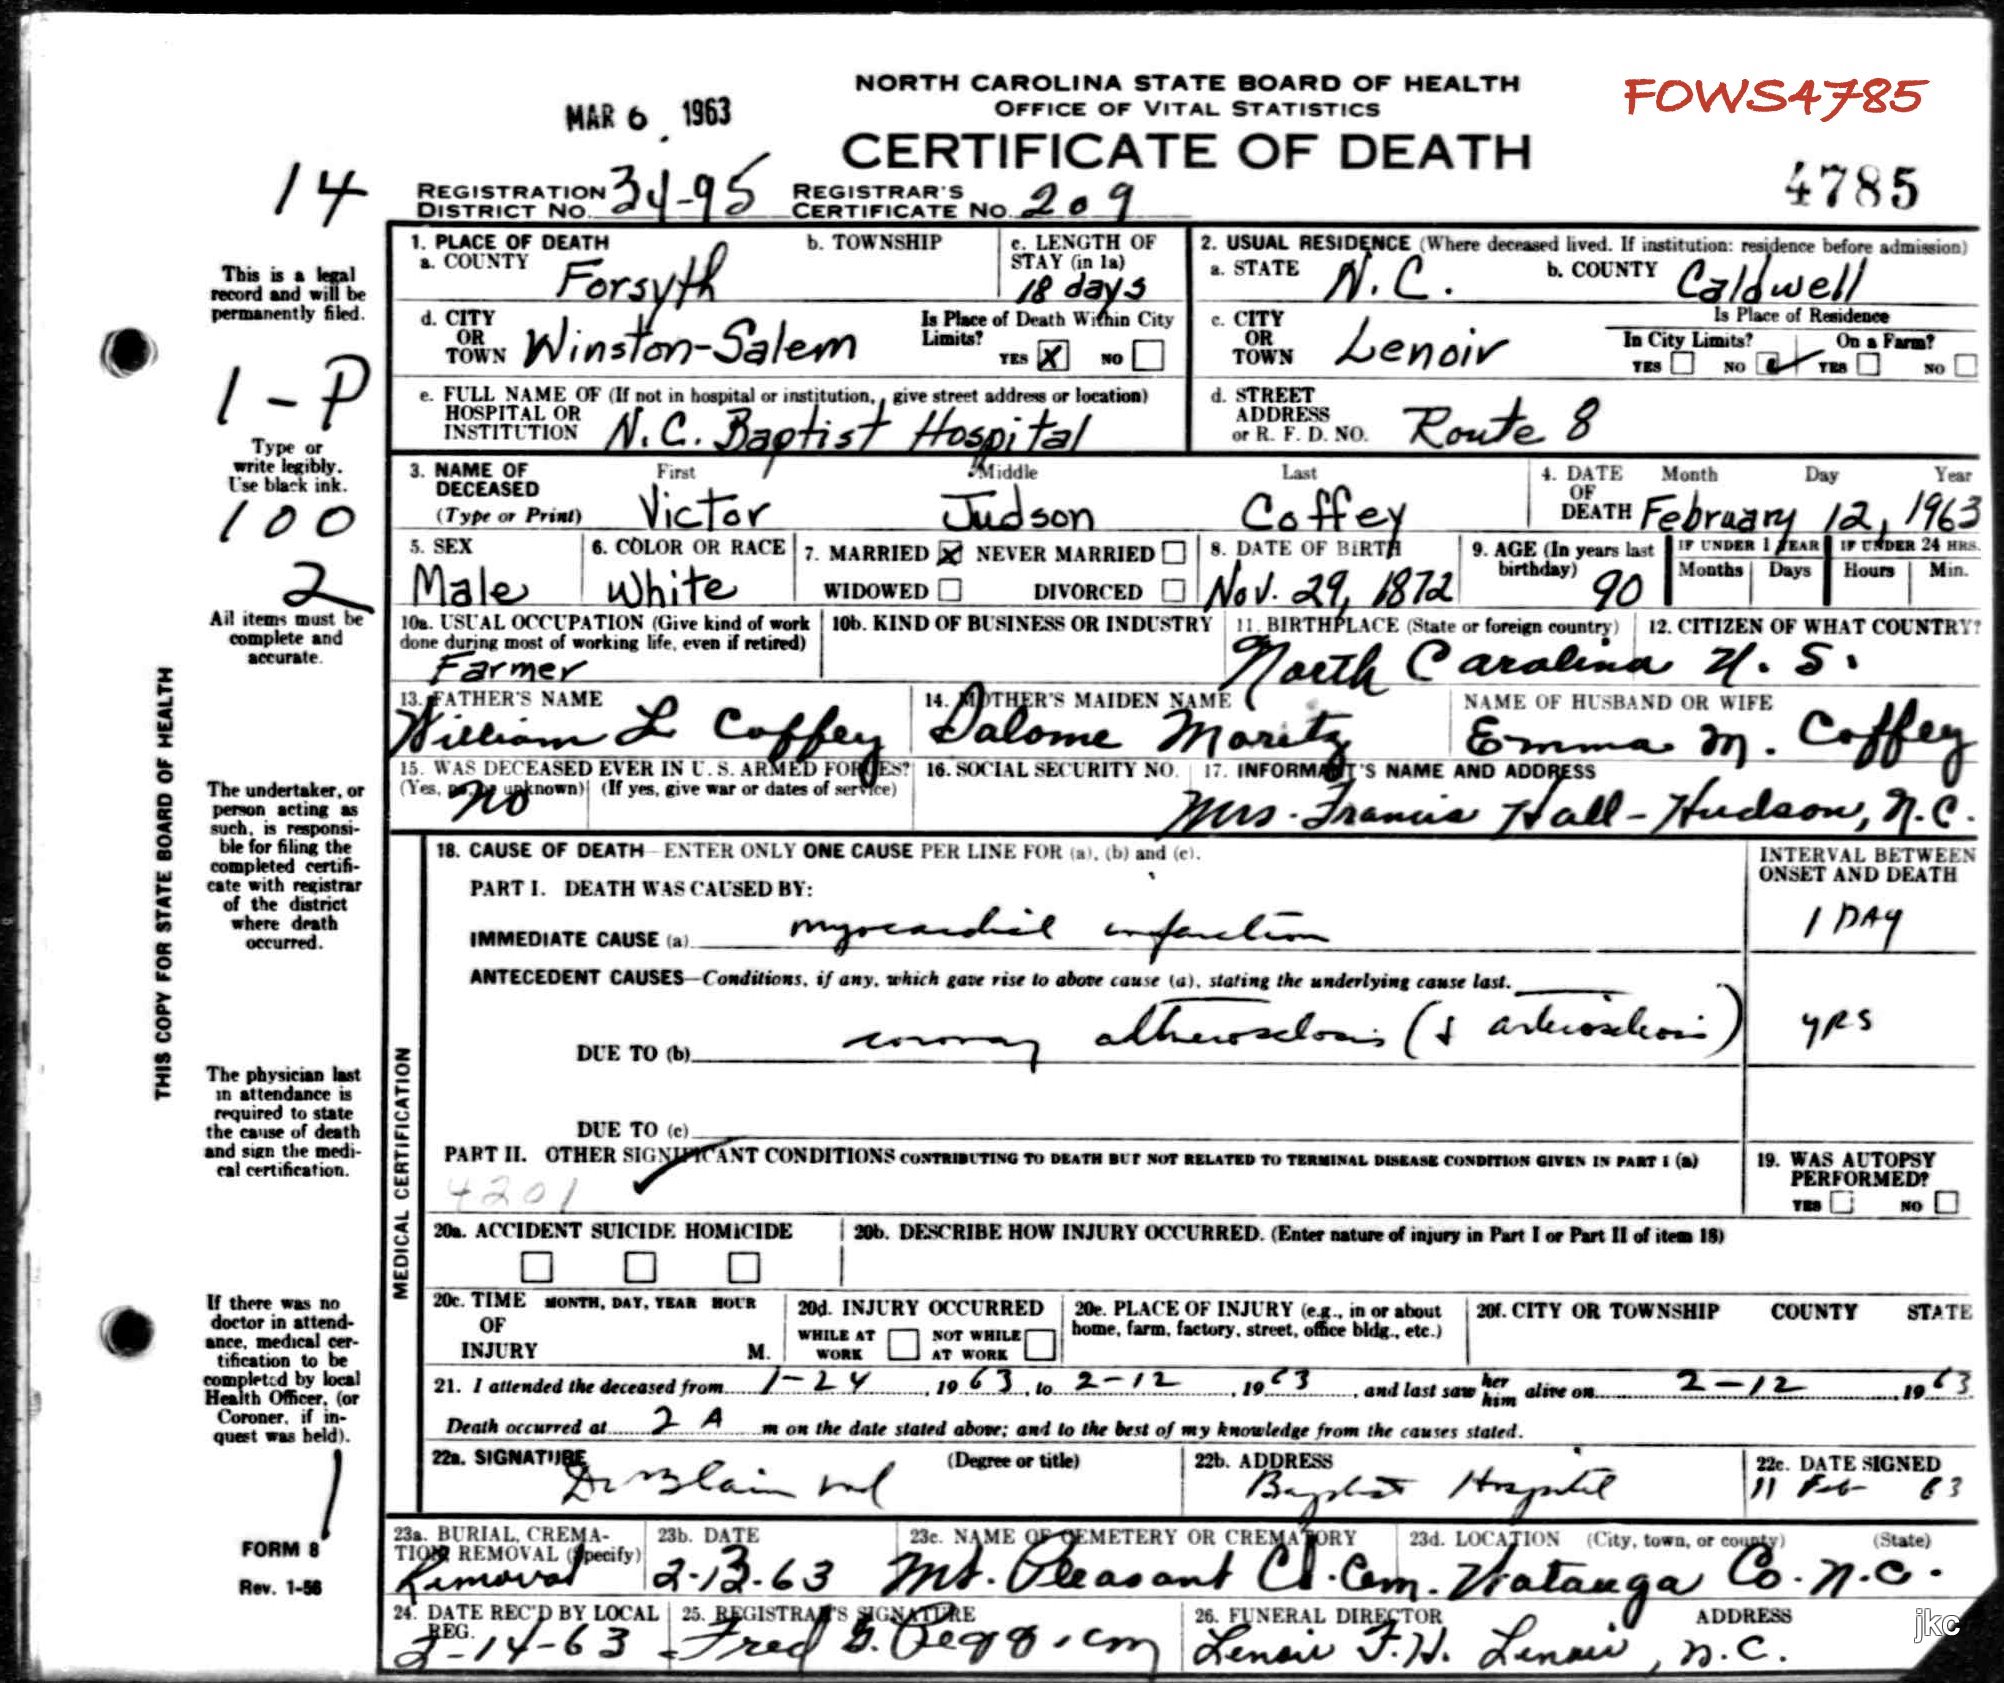 NORTH CAROLINA STATE BOARD OF HEALTH
OFFICE OF VITAL STATISTICS
CERTIFICATE OF DEATH
FOWS4785
MAR 6 1963
4785
14
REGISTRATION DISTRICT NO. 34-95 REGISTRAR'S CERTIFICATE NO. 209
This is a legal record and will be permanently filed.
1-P
Type or write legibly. Use black ink.
100
2
All items must be complete and accurate.
THIS COPY FOR STATE BOARD OF HEALTH
The undertaker, or person acting as such, is responsible for filing the completed certificate with registrar of the district where death occurred.
The physician last in attendance is required to state the cause of death and sign the medical certification.
If there was no doctor in attendance, medical certification to be completed by local Health Officer, (or Coroner, if inquest was held).
1
FORM 8
Rev. 1-56
1. PLACE OF DEATH
a. COUNTY Forsyth
b. TOWNSHIP
c. LENGTH OF STAY (in 1a) 18 days
2. USUAL RESIDENCE (Where deceased lived. If institution: residence before admission)
a. STATE N.C. b. COUNTY Caldwell
d. CITY OR TOWN Winston-Salem
Is Place of Death Within City Limits? YES X NO
c. CITY OR TOWN Lenoir
Is Place of Residence
In City Limits? YES NO On a Farm? YES NO
e. FULL NAME OF (If not in hospital or institution, give street address or location) HOSPITAL OR INSTITUTION N.C. Baptist Hospital
d. STREET ADDRESS or R. F. D. NO. Route 8
3. NAME OF DECEASED (Type or Print) First Victor Middle Judson Last Coffey
4. DATE OF DEATH Month Day Year February 12, 1963
5. SEX Male
6. COLOR OR RACE White
7. MARRIED X NEVER MARRIED
WIDOWED DIVORCED
8. DATE OF BIRTH Nov. 29, 1872
9. AGE (In years last birthday) 90
IF UNDER 1 YEAR Months Days
IF UNDER 24 HRS. Hours Min.
10a. USUAL OCCUPATION (Give kind of work done during most of working life, even if retired) Farmer
10b. KIND OF BUSINESS OR INDUSTRY
11. BIRTHPLACE (State or foreign country) North Carolina
12. CITIZEN OF WHAT COUNTRY? U.S.
13. FATHER'S NAME William L Coffey
14. MOTHER'S MAIDEN NAME Dalome Moritz
NAME OF HUSBAND OR WIFE Emma M. Coffey
15. WAS DECEASED EVER IN U.S. ARMED FORCES? (Yes, no, or unknown) (If yes, give war or dates of service) no
16. SOCIAL SECURITY NO.
17. INFORMANT'S NAME AND ADDRESS Mrs. Francis Hall - Hudson, N.C.
MEDICAL CERTIFICATION
18. CAUSE OF DEATH—ENTER ONLY ONE CAUSE PER LINE FOR (a), (b) and (c).
INTERVAL BETWEEN ONSET AND DEATH
PART I. DEATH WAS CAUSED BY:
IMMEDIATE CAUSE (a) myocardial infarction 1 DAY
ANTECEDENT CAUSES—Conditions, if any, which gave rise to above cause (a), stating the underlying cause last.
DUE TO (b) coronary atherosclerosis (& arteriosclerosis) YRS
DUE TO (c)
PART II. OTHER SIGNIFICANT CONDITIONS CONTRIBUTING TO DEATH BUT NOT RELATED TO TERMINAL DISEASE CONDITION GIVEN IN PART I (a)
4201
19. WAS AUTOPSY PERFORMED? YES NO
20a. ACCIDENT SUICIDE HOMICIDE
20b. DESCRIBE HOW INJURY OCCURRED. (Enter nature of injury in Part I or Part II of item 18)
20c. TIME OF INJURY MONTH, DAY, YEAR HOUR M.
20d. INJURY OCCURRED WHILE AT WORK NOT WHILE AT WORK
20e. PLACE OF INJURY (e.g., in or about home, farm, factory, street, office bldg., etc.)
20f. CITY OR TOWNSHIP COUNTY STATE
21. I attended the deceased from 1-24, 1963, to 2-12, 1963, and last saw her him alive on 2-12 1963
Death occurred at 2 A m on the date stated above; and to the best of my knowledge from the causes stated.
22a. SIGNATURE (Degree or title) Blain md
22b. ADDRESS Baptist Hospital
22c. DATE SIGNED 11 Feb 63
23a. BURIAL, CREMATION, REMOVAL (Specify) Removal
23b. DATE 2-13-63
23c. NAME OF CEMETERY OR CREMATORY Mt. Pleasant Ch. Cem.
23d. LOCATION (City, town, or county) (State) Watauga Co. N.C.
24. DATE REC'D BY LOCAL REG. 2-14-63
25. REGISTRAR'S SIGNATURE Fred G. Pegg
26. FUNERAL DIRECTOR ADDRESS Lenoir F.H. Lenoir, N.C.
jkc